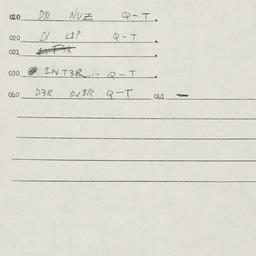 020 DNI NUZ Q-T
020 DI L1P Q-T
021
030 1NT3R... Q-T
040 D3R 0V3R Q-T 041 —